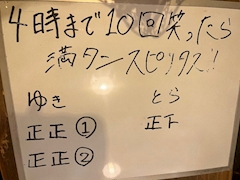 4時まで10回笑ったら
満タンスピリタス!!
ゆき
正正①
正正②
とら
正下